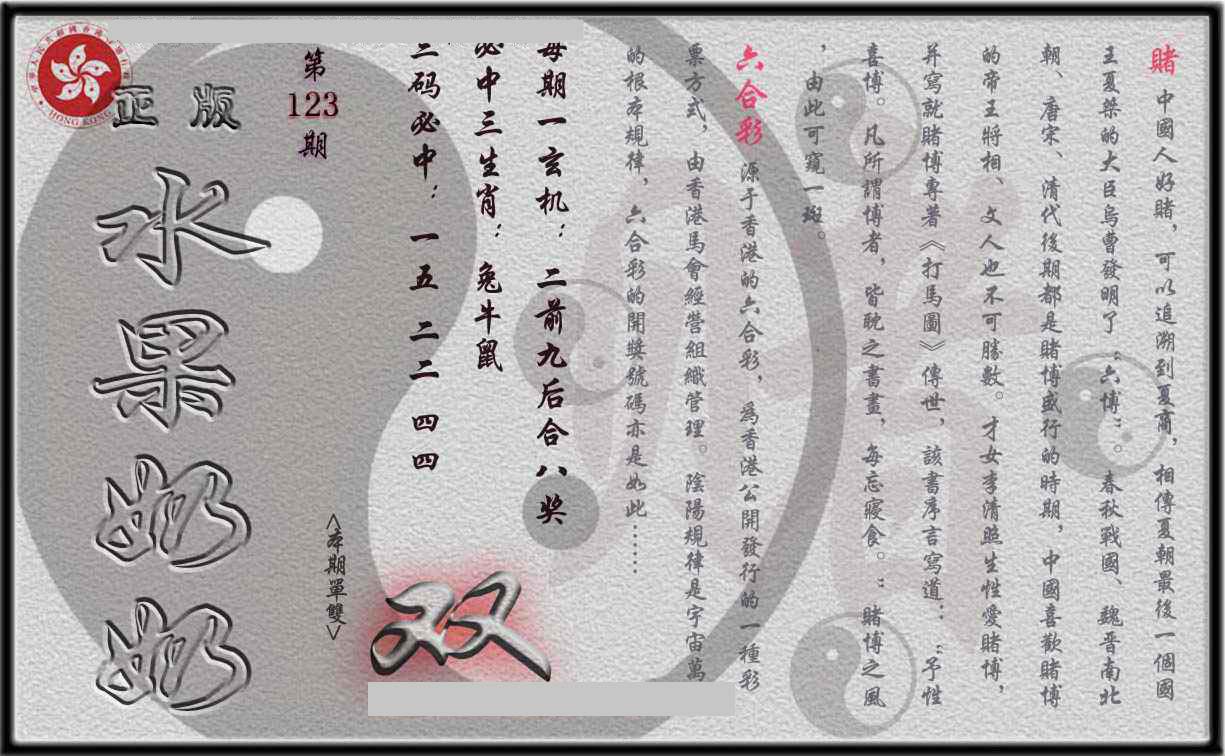 賭 中國人好賭，可以追溯到夏商，相傳夏朝最後一個國
王夏桀的大臣烏曹發明了“六博”。春秋戰國、魏晉南北
朝、唐宋、清代後期都是賭博盛行的時期，中國喜歡賭博
的帝王將相、文人也不可勝數。才女李清照生性愛賭博，
并寫就賭博專著《打馬圖》傳世，該書序言寫道：“予性
喜博。凡所謂博者，皆耽之書畫，每忘寢食。”賭博之風
，由此可窺一斑。
六合彩 源于香港的六合彩，為香港公開發行的一種彩
票方式，由香港馬會經營組織管理。陰陽規律是宇宙萬
的根本規律，六合彩的開獎號碼亦是如此……
每期一玄机：二前九后合八奖
必中三生肖：兔牛鼠
三码必中：一五 二二 四四
双
<本期單雙>
第
123
期
正版
水果奶奶
HONG KONG